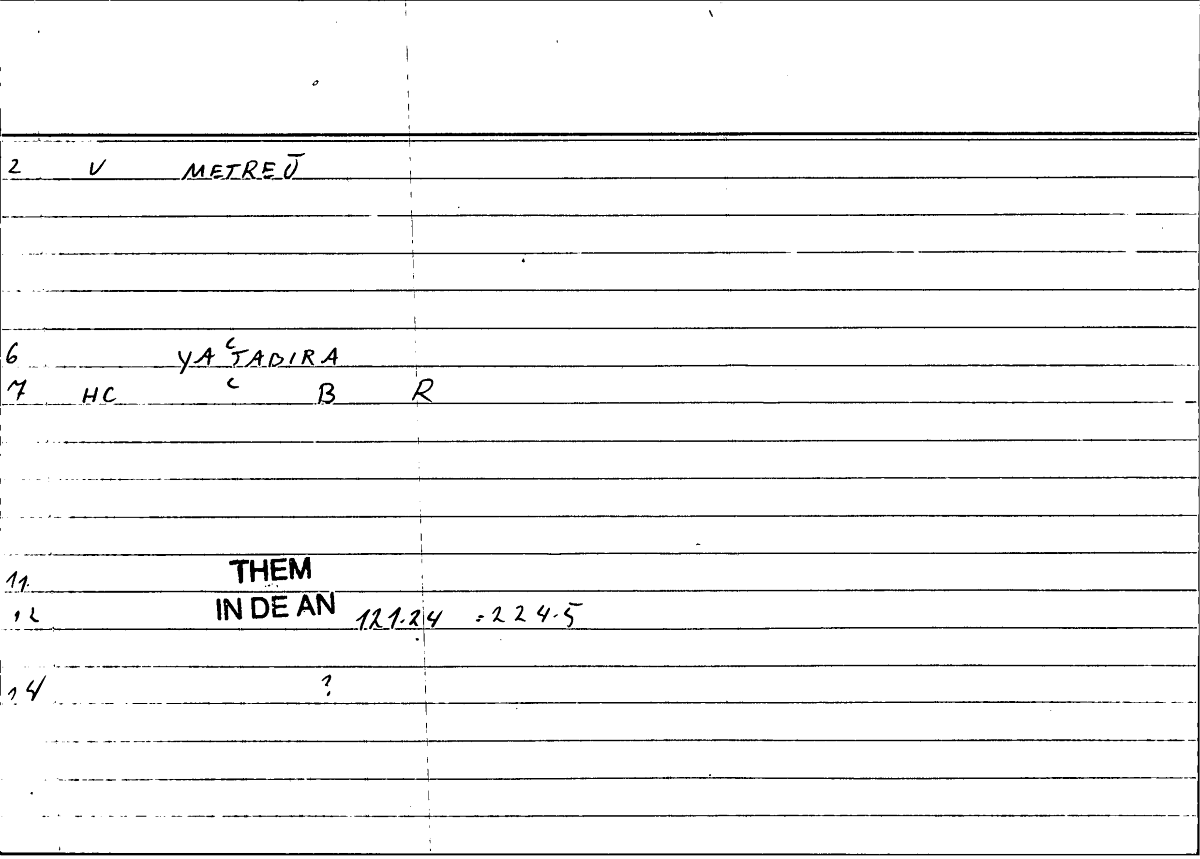 2 V METREŪ
6 YAʿTABIRA
7 HC ʿ B R
11 THEM
12 IN DE AN 121.24 =224.5
14 ?